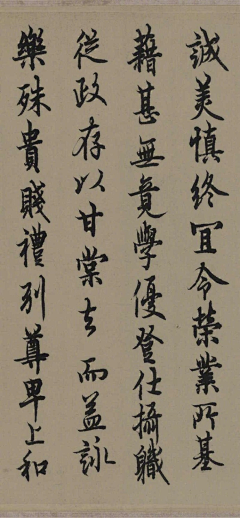 誠美慎終冝令榮業所基
藉甚無竟學優登仕攝軄
從政存以甘棠去而益詠
樂殊貴賤禮別尊卑上和